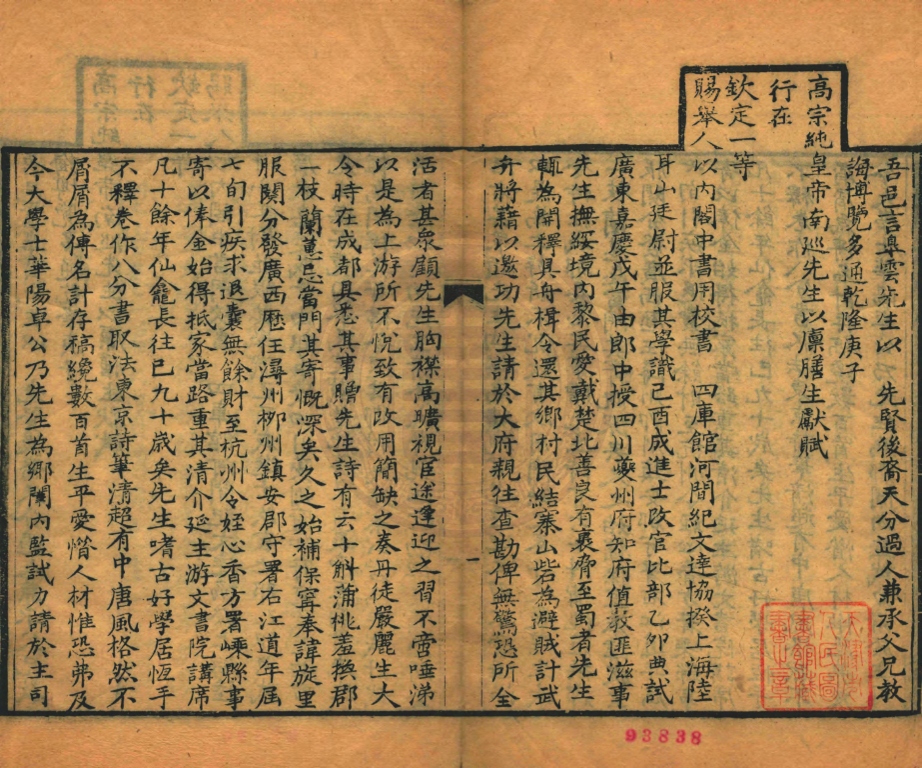 吾邑言臯雲先生以　先賢後裔天分過人兼承父兄教
誨博覽多通乾隆庚子
高宗純皇帝南巡先生以廩膳生獻賦
行在
欽定一等
賜舉人以內閣中書用校書　四庫館河間紀文達協揆上海陸
耳山廷尉並服其學識己酉成進士改官比部乙卯典試
廣東嘉慶戊午由郎中授四川夔州府知府值教匪滋事
先生撫綏境內黎民愛戴楚北善良有裹脅至蜀者先生
輒為開釋具舟楫令還其鄉村民結寨山砦為避賊計武
弁將籍以邀功先生請於大府親往查勘俾無驚恐所全
活者甚衆顧先生胸襟高曠視宦途逢迎之習不啻唾涕
以是為上游所不悅致有改用簡缺之奏丹徒嚴麗生大
令時在成都具悉其事贈先生詩有云十斛蒲桃羞換郡
一枝蘭蕙忌當門其寄慨深矣久之始補保甯奉諱旋里
服闋分發廣西歷任潯州柳州鎮安郡守署右江道年屆
七旬引疾求退囊無餘財至杭州令姪心香方署嵊縣事
寄以俸金始得抵家當路重其清介延主游文書院講席
凡十餘年仙龕長往已九十歲矣先生嗜古好學居恆手
不釋卷作八分書取法東京詩筆清超有中唐風格然不
屑屑為傳名計存稿纔數百首生平愛惜人材惟恐弗及
今大學士華陽卓公乃先生為鄉闈內監試力請於主司
一
天津市
人民圖
書館藏
書之章
93838